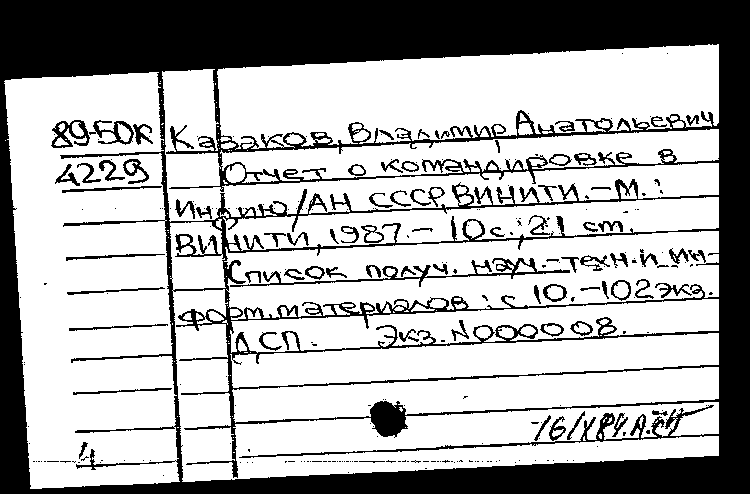 89-50К Казаков, Владимир Анатольевич
4229 Отчет о командировке в
Индию/АН СССР, ВИНИТИ.-М.:
ВИНИТИ, 1987.- 10с.; 21 cm.
Список получ. науч.-техн. и ин-
форм. материалов: с 10.-102 экз.
ДСП. Экз. N000008.
4